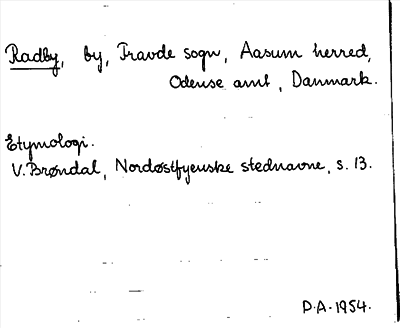 Radby, by, Travde sogn, Aasum herred,
Odense amt, Danmark.
Etymologi.
V. Brøndal, Nordøstfyenske stednavne, s. 13.
D.A. 1954.